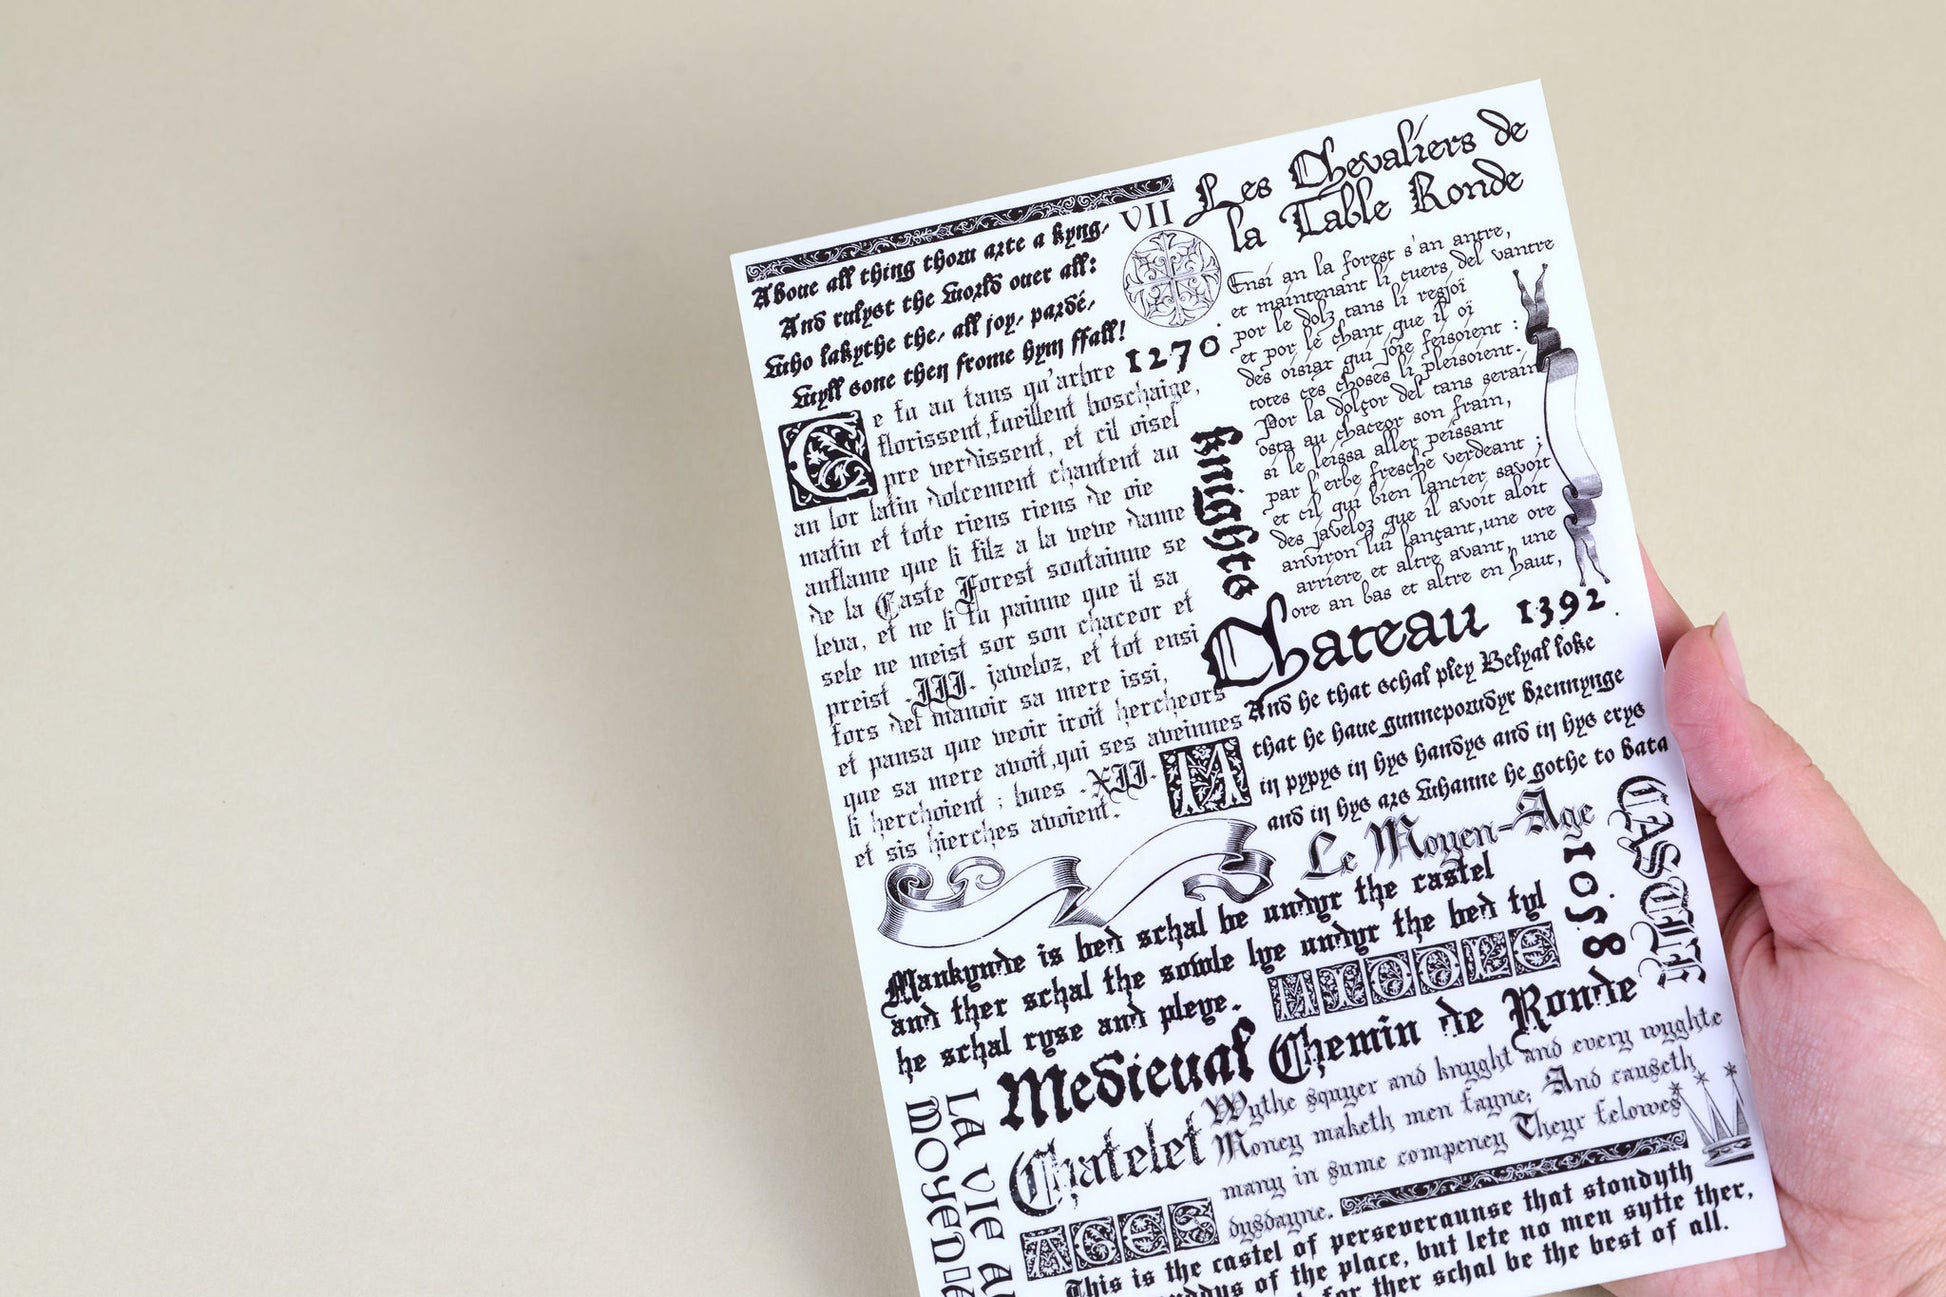 VII
Les Chevaliers de
la Table Ronde
Aboue all thing thow arte a kyng,
And rulyst the world ouer all:
Who lakythe the, all joy, pardé,
Wyll sone then frome hym ffall!
1270
Ensi an la forest s'an antre,
et maintenant li cuers del vantre
por le dolz tans li resjoi
et por le chant que il oï
des oisiax qui joie feisoient :
totes ces choses li pleisoient.
Por la dolçor del tans serain
osta au chaceor son frain,
si le leissa aller peissant
par l'erbe fresche verdeant ;
et cil qui bien lancier savoit
des javeloz que il avoit aloit
anviron lui lançant, une ore
arriere et altre avant, une
ore an bas et altre en haut,
Ce fu au tans qu'arbre
florissent, fueillent boschaige,
pre verdissent, et cil oisel
an lor latin dolcement chantent au
matin et tote riens riens de oie
anflame que li filz a la veve dame
de la Gaste Forest soutainne se
leva, et ne li fu painne que il sa
sele ne meist sor son chaceor et
preist .III. javeloz, et tot ensi
fors del manoir sa mere issi,
et pansa que veoir iroit hercheors
que sa mere avoit, qui ses aveinnes
li herchoient ; bues .XII.
et sis hierches avoient.
knights
Chateau 1392
M
And he that schal pley Belyal loke
that he haue gunnepowdyr brennynge
in pypys in hys handys and in hys erys
and in hys ars whanne he gothe to bata
Le Moyen-Age
1058
CASTLE
Mankynde is bed schal be undyr the castel
and ther schal the sowle lye undyr the bed tyl
he schal ryse and pleye.
MIDDLE
Medieval
Chemin de Ronde
LA VIE AU
MOYEN
Chatelet
Wythe squyer and knyght and every wyghte
Money maketh men fayne; And causeth
many in sume compeney Theyr felowes
dysdayne.
AGES
This is the castel of perseveraunse that stondyth
of the place, but lete no men sytte ther,
for ther schal be the best of all.